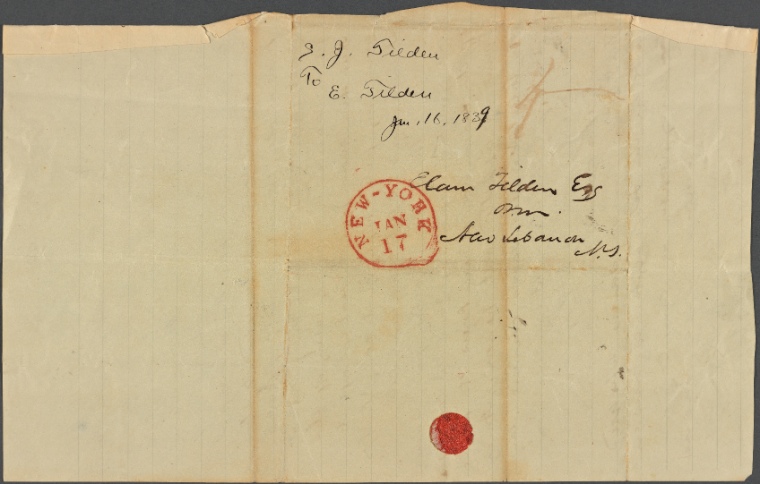 S. J. Tilden
To
E. Tilden
Jan. 16, 1839
NEW-YORK
JAN
17
Elam Tilden Esq
New Lebanon
N.Y.